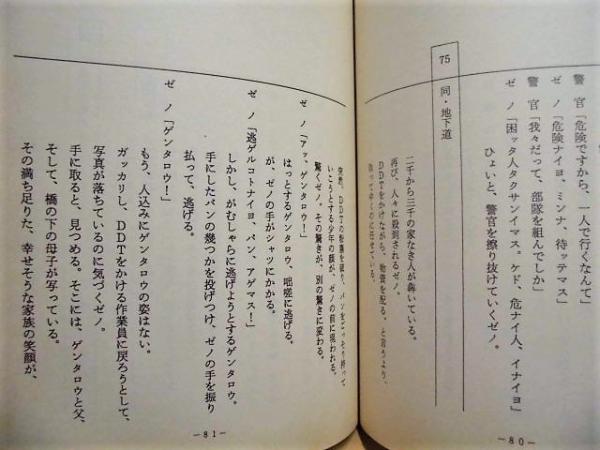 警 官「危険ですから、一人で行くなんて」
ゼ ノ「危険ナイヨ、ミンナ、待ッテマス」
警 官「我々だって、部隊を組んでしか」
ゼ ノ「困ッタ人タクサンイマス。ケド、危ナイ人、イナイヨ」
ひょいと、警官を擦り抜けていくゼノ。
75 同・地下道
二千から三千の家なき人が犇いている。
再び、人々に殺到されるゼノ。
DDTをかけながら、物資を配る、と言うより、
持ってゆくのに任せている。
―80―
突然、DDTの粉煙を破り、パンをごっそり持って
いこうとする少年の顔が、ゼノの前に現われる。
驚くゼノ。その驚きが、別の驚きに変わる。
ゼ ノ「アッ、ゲンタロウ!」
はっとするゲンタロウ、咄嗟に逃げる。
が、ゼノの手がシャツにかかる。
ゼ ノ「逃ゲルコトナイヨ、パン、アゲマス!」
しかし、がむしゃらに逃げようとするゲンタロウ。
手にしたパンの幾つかを投げつけ、ゼノの手を振り
払って、逃げる。
ゼ ノ「ゲンタロウ!」
もう、人込みにゲンタロウの姿はない。
ガッカリし、DDTをかける作業員に戻ろうとして、
写真が落ちているのに気づくゼノ。
手に取ると、見つめる。そこには、ゲンタロウと父、
そして、橋の下の母子が写っている。
その満ち足りた、幸せそうな家族の笑顔が、
―81―